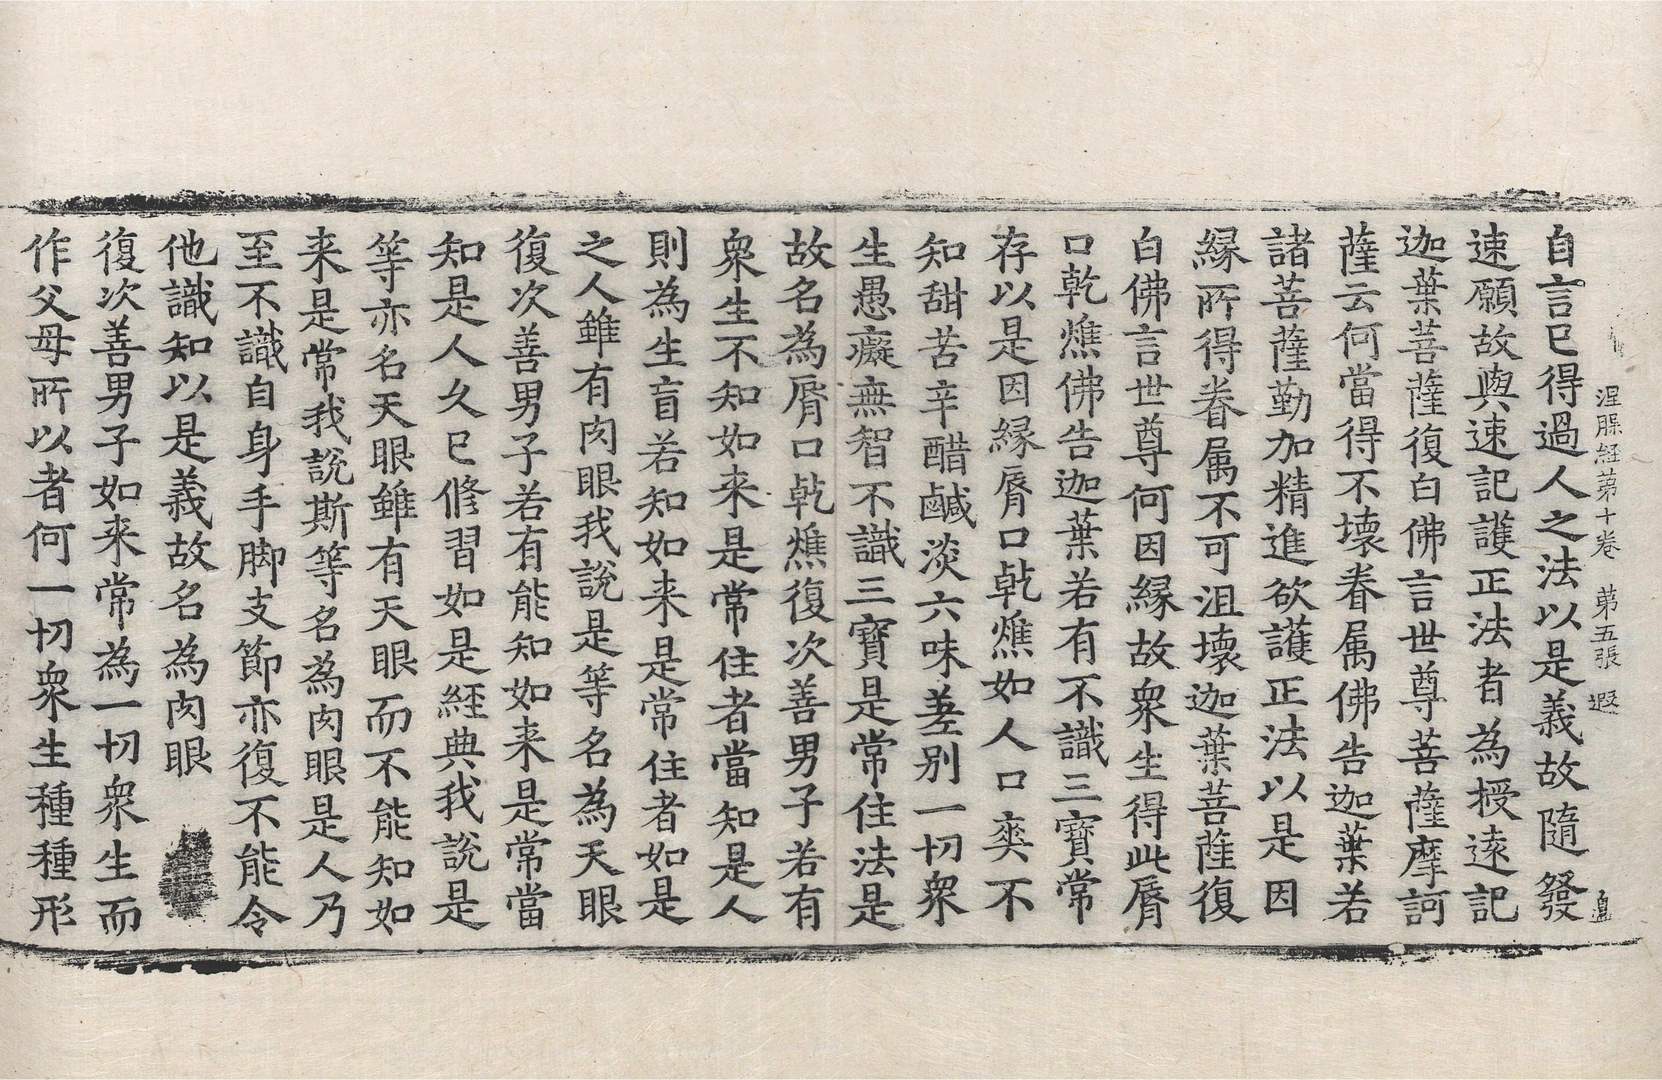 涅槃経第十卷　第五張　遐
自言已得過人之法以是義故隨發
速願故與速記護正法者為授遠記
迦葉菩薩復白佛言世尊菩薩摩訶
薩云何當得不壞眷属佛告迦葉若
諸菩薩勤加精進欲護正法以是因
縁所得眷属不可沮壞迦葉菩薩復
白佛言世尊何因縁故衆生得此脣
口乾燋佛告迦葉若有不識三寶常
存以是因縁脣口乾燋如人口爽不
知甜苦辛醋鹹淡六味差别一切衆
生愚癡無智不識三寶是常住法是
故名為脣口乾燋復次善男子若有
衆生不知如来是常住者當知是人
則為生盲若知如来是常住者如是
之人雖有肉眼我說是等名為天眼
復次善男子若有能知如来是常當
知是人久已修習如是經典我說是
等亦名天眼雖有天眼而不能知如
来是常我說斯等名為肉眼是人乃
至不識自身手脚支節亦復不能令
他識知以是義故名為肉眼
復次善男子如来常為一切衆生而
作父母所以者何一切衆生種種形